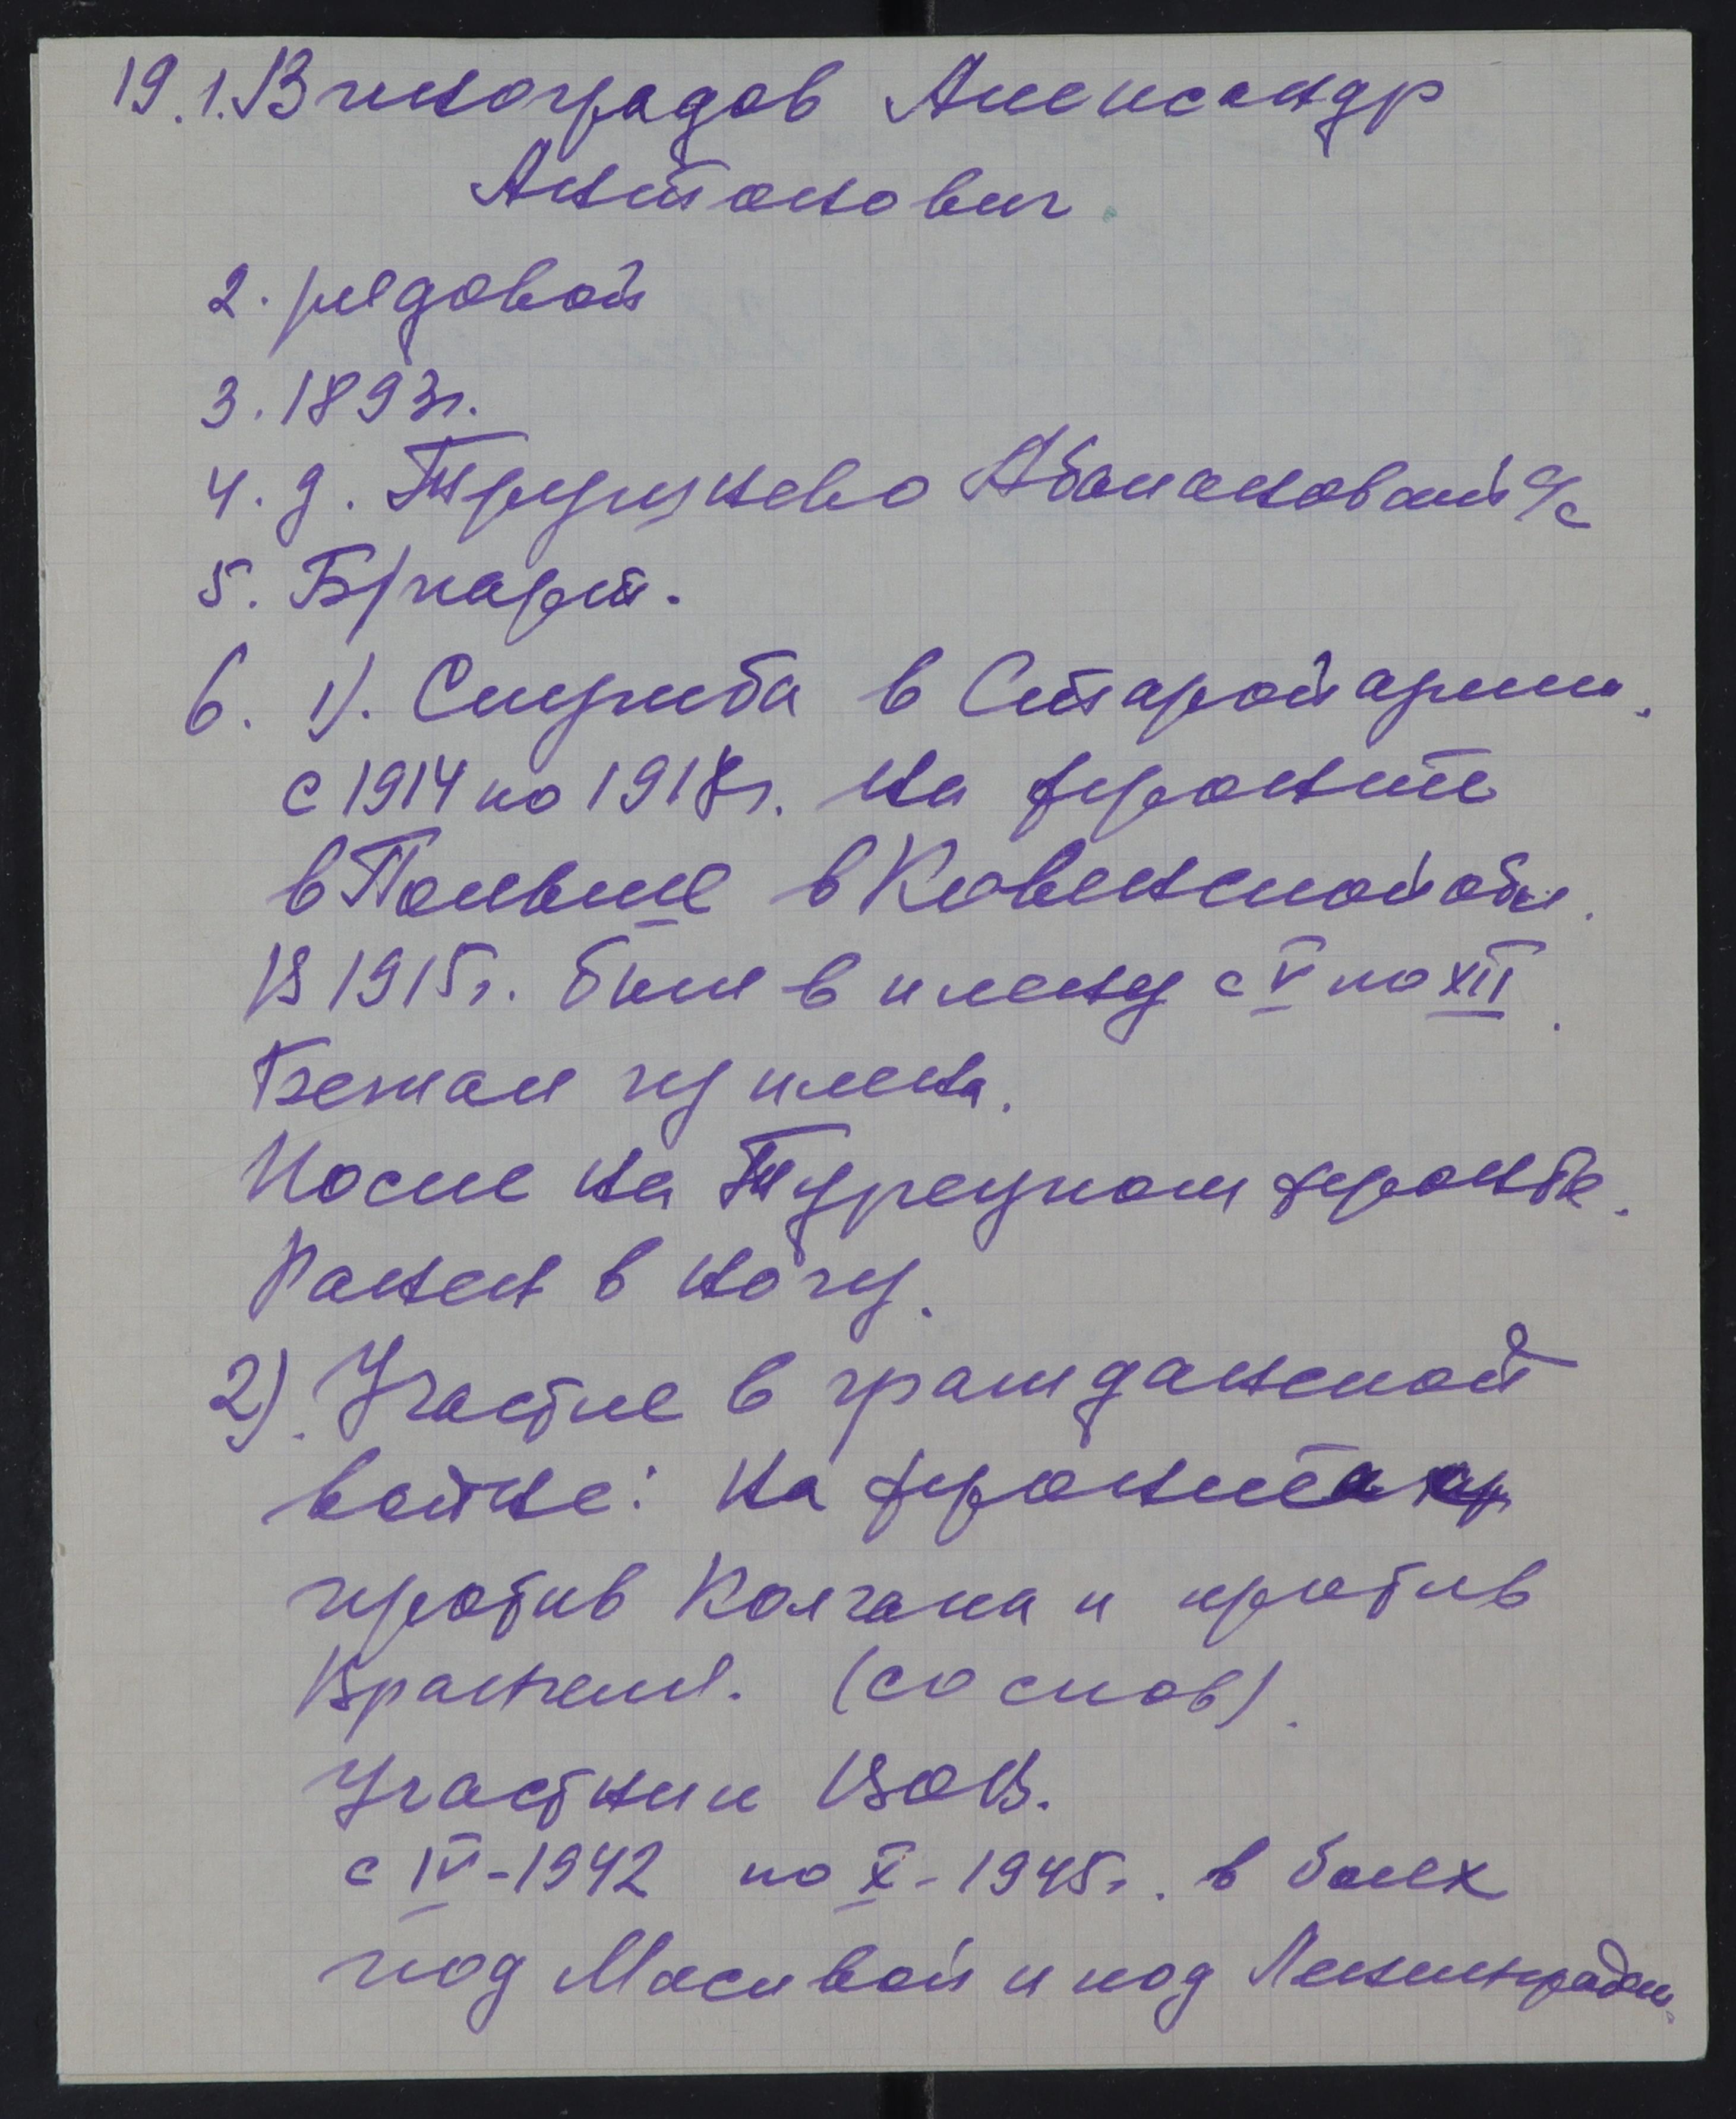 19.1. Виноградов Александр
Антонович.
2. рядовой
3. 1893г.
4. д. Абакановский с/с
5. Б/парт.
6. 1). Служба в Старой армии.
с 1914 по 1918г. На фронте
в Польше в Ковенской обл.
В 1915г. был в плену с V по XII.
Бежал из плена.
После на Турецком фронте.
Ранен в ногу.
2). Участие в гражданской
войне: На фронта
против Колчака и против
Врангеля. (соснов).
Участник ВОВ.
с IV-1942 по X-1945г. в боях
под Москвой и под Ленинградом.